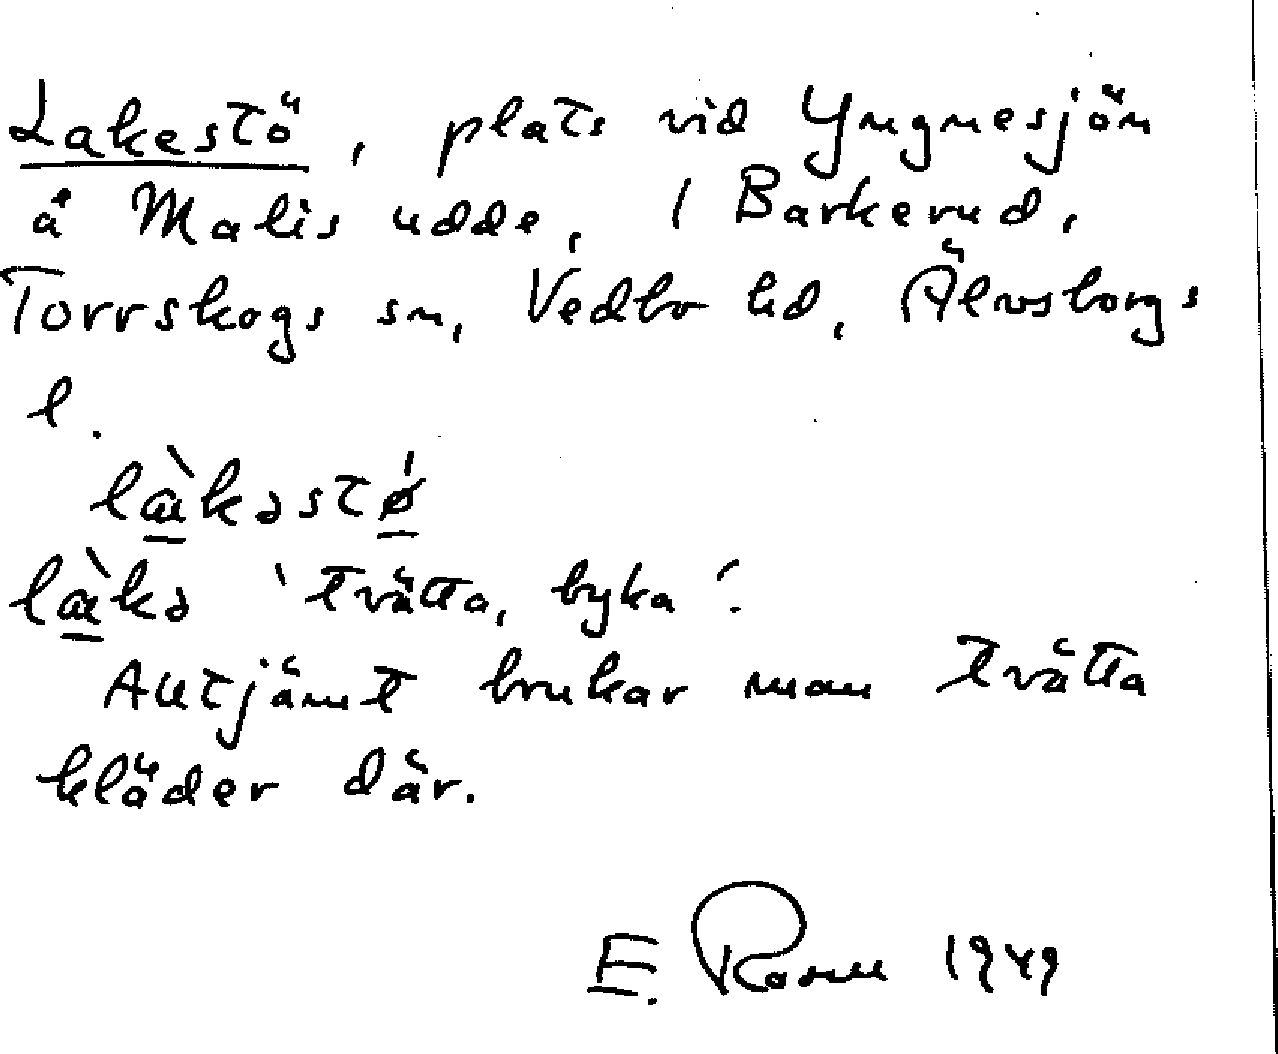 Lakestö, plats vid Yngnesjön
å Malis udde, i Barkerud,
Torrskogs sn, Vedbo hd, Älvsborgs
l.
læ̀kəstǿ
læ̀kə 'tvätta, byka'.
Alltjämt brukar man tvätta
kläder där.
E. 1949